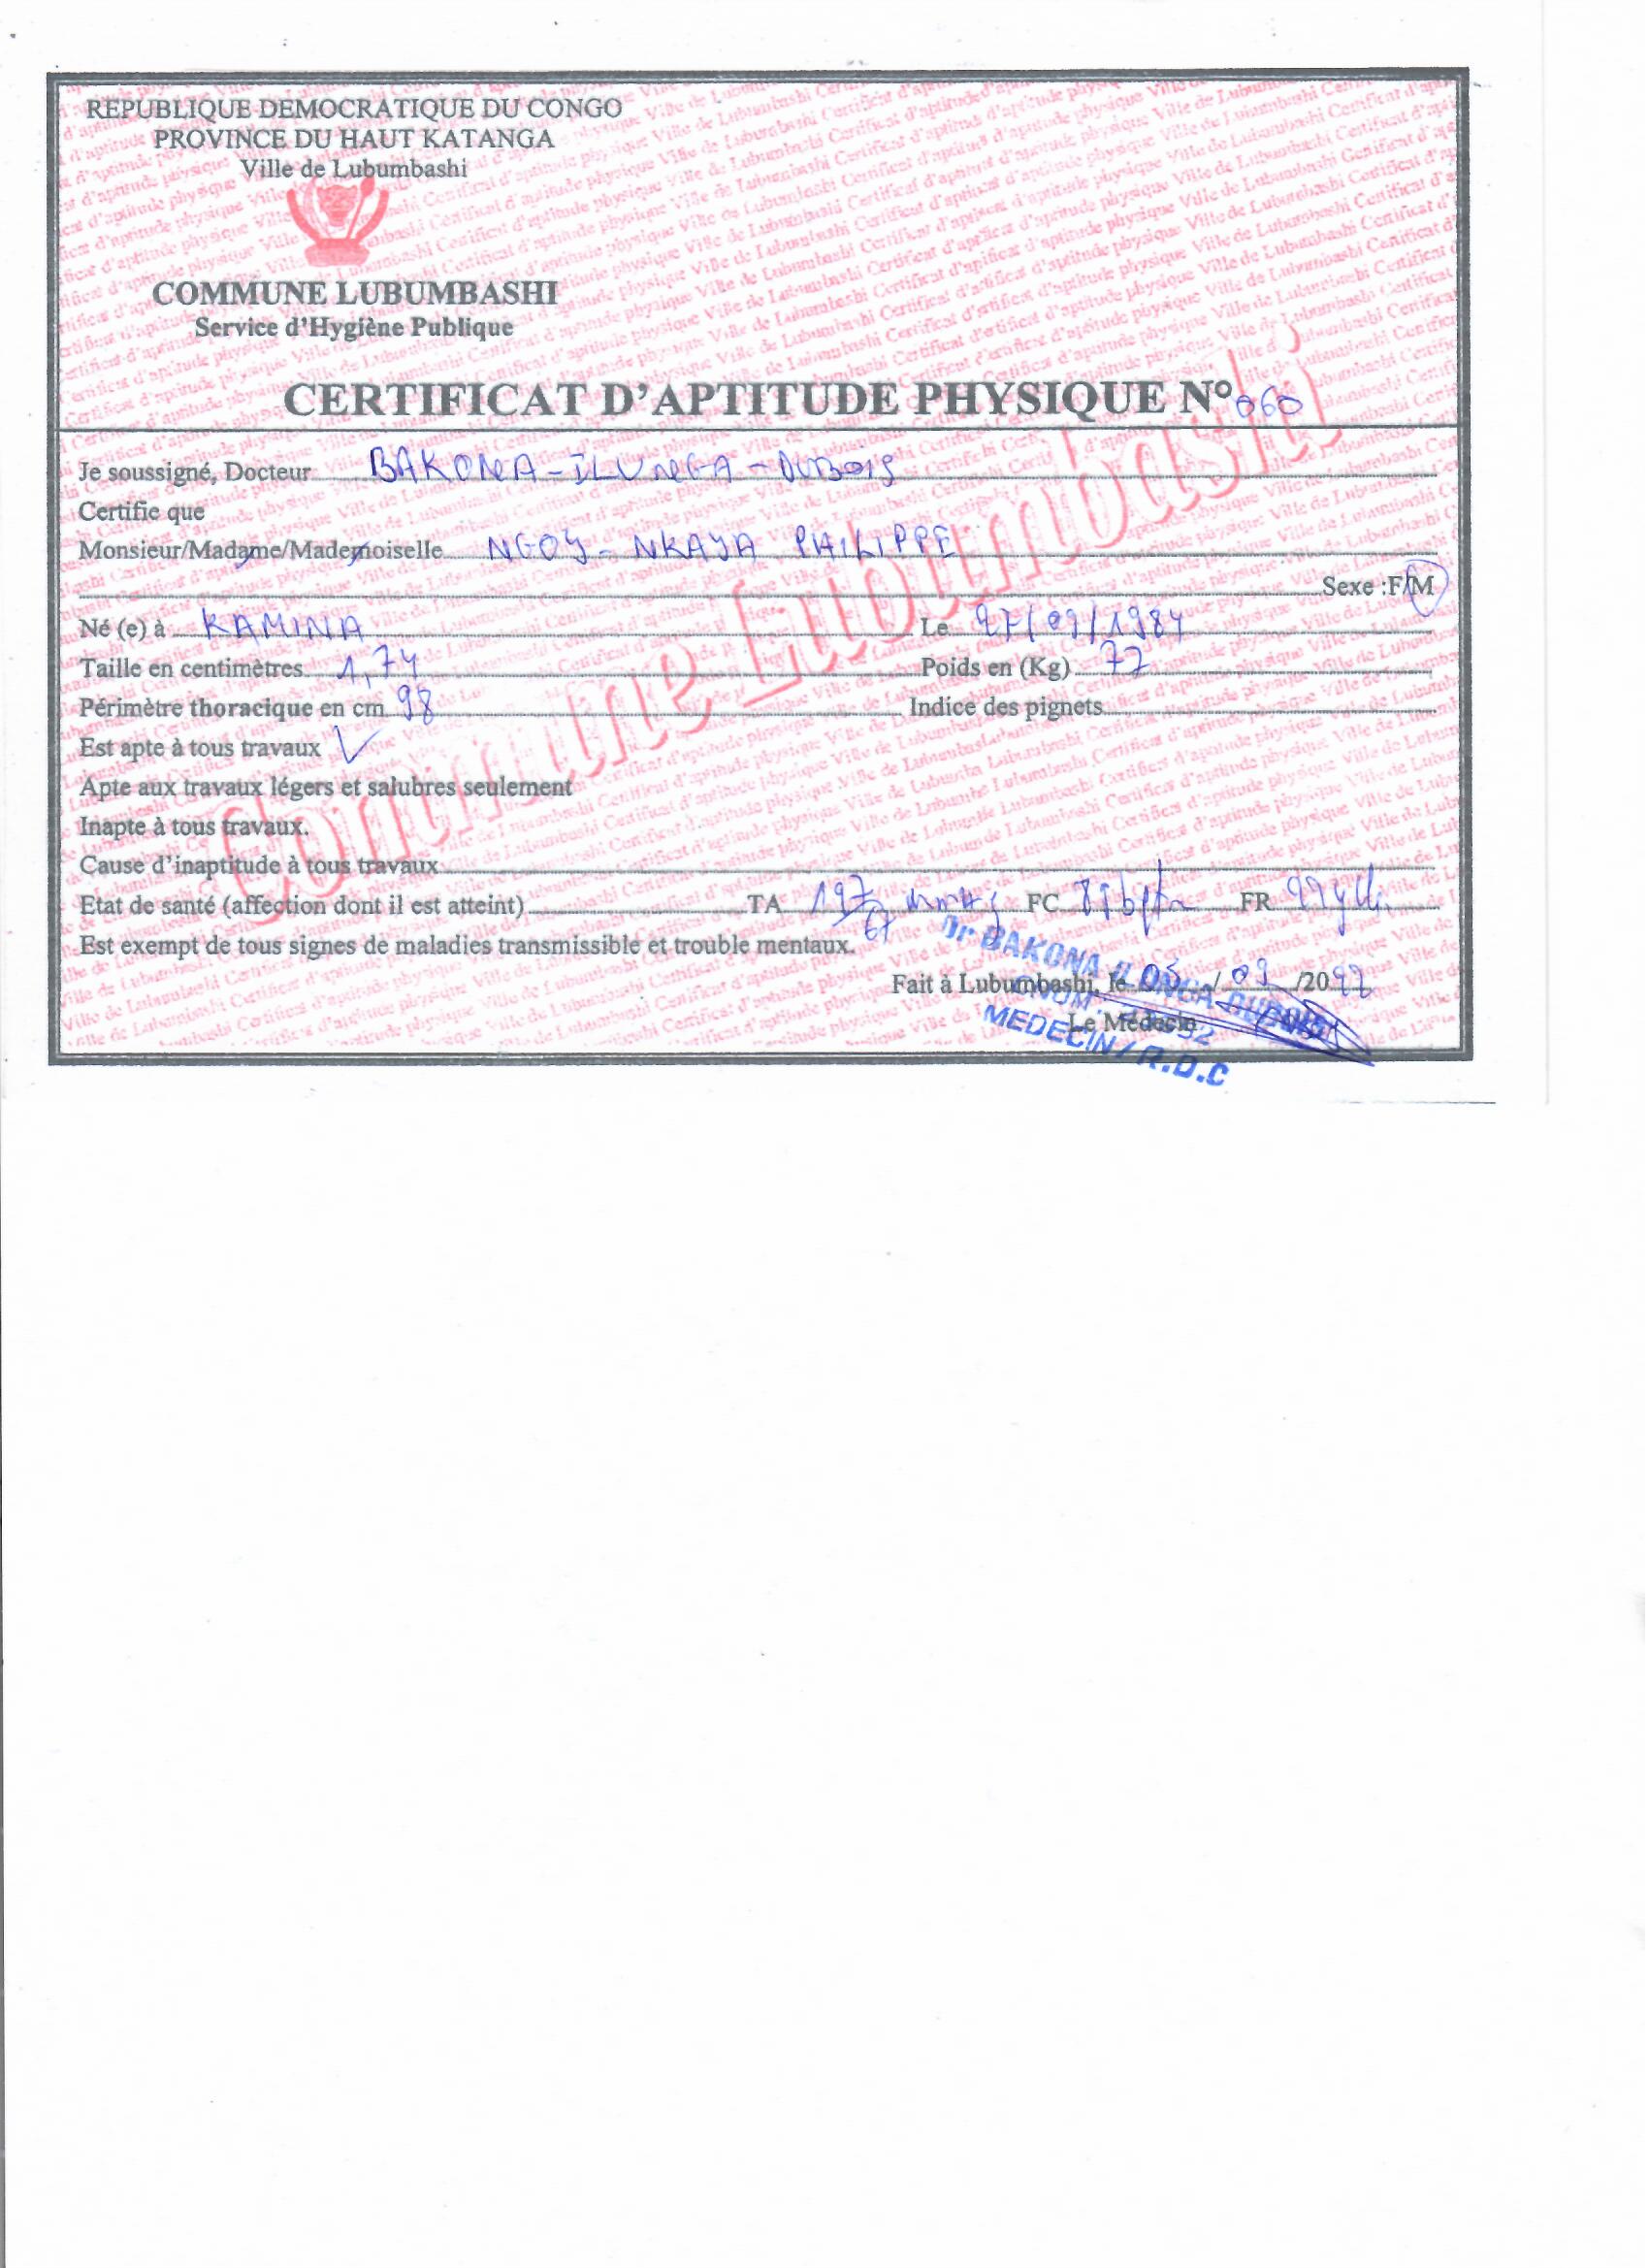 REPUBLIQUE DEMOCRATIQUE DU CONGO
PROVINCE DU HAUT KATANGA
Ville de Lubumbashi
COMMUNE LUBUMBASHI
Service d'Hygiène Publique
CERTIFICAT D'APTITUDE PHYSIQUE N° 060
Je soussigné, Docteur BAKONA-ILUNGA-DUBOIS
Certifie que
Monsieur/Madame/Mademoiselle NGOY-NKAYA PHILIPPE
Sexe :F/M
Né (e) à KAMINA Le 27/09/1984
Taille en centimètres 1,74 Poids en (Kg) 77
Périmètre thoracique en cm 98 Indice des pignets
Est apte à tous travaux
Apte aux travaux légers et salubres seulement
Inapte à tous travaux.
Cause d'inaptitude à tous travaux
Etat de santé (affection dont il est atteint) TA FC FR
Est exempt de tous signes de maladies transmissible et trouble mentaux.
Dr BAKONA ILUNGA DUBOIS
Fait à Lubumbashi, le 05/09/2022
Le Médecin
MEDECIN / R.D.C
Commune Lubumbashi